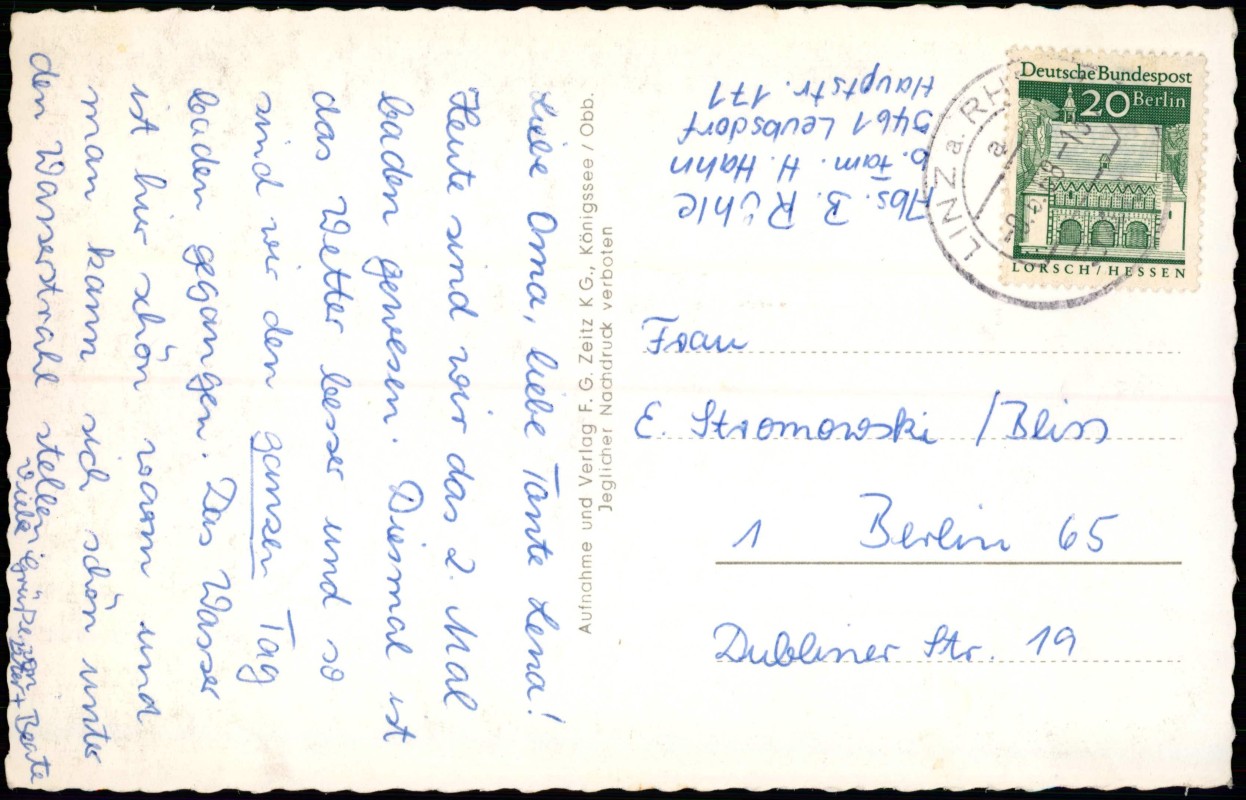 Liebe Oma, liebe Tante Lena!
Heute sind wir das 2. Mal
baden gewesen. Diesmal ist
das Wetter besser und so
sind wir den ganzen Tag
baden gegangen. Das Wasser
ist hier schön warm und
man kann sich schön unter
den Wasserstrahl stellen
Viele Grüße von
Beate
Aufnahme und Verlag F. G. Zeitz KG., Königssee / Obb.
Jeglicher Nachdruck verboten
Abs. B. Rühle
b. Fam. H. Hahn
5461 Leubsdorf
Hauptstr. 171
Deutsche Bundespost
20 Berlin
LORSCH/HESSEN
LINZ a. RH
a
Frau
E. Stromowski / Bliss
1 Berlin 65
Dubliner Str. 19